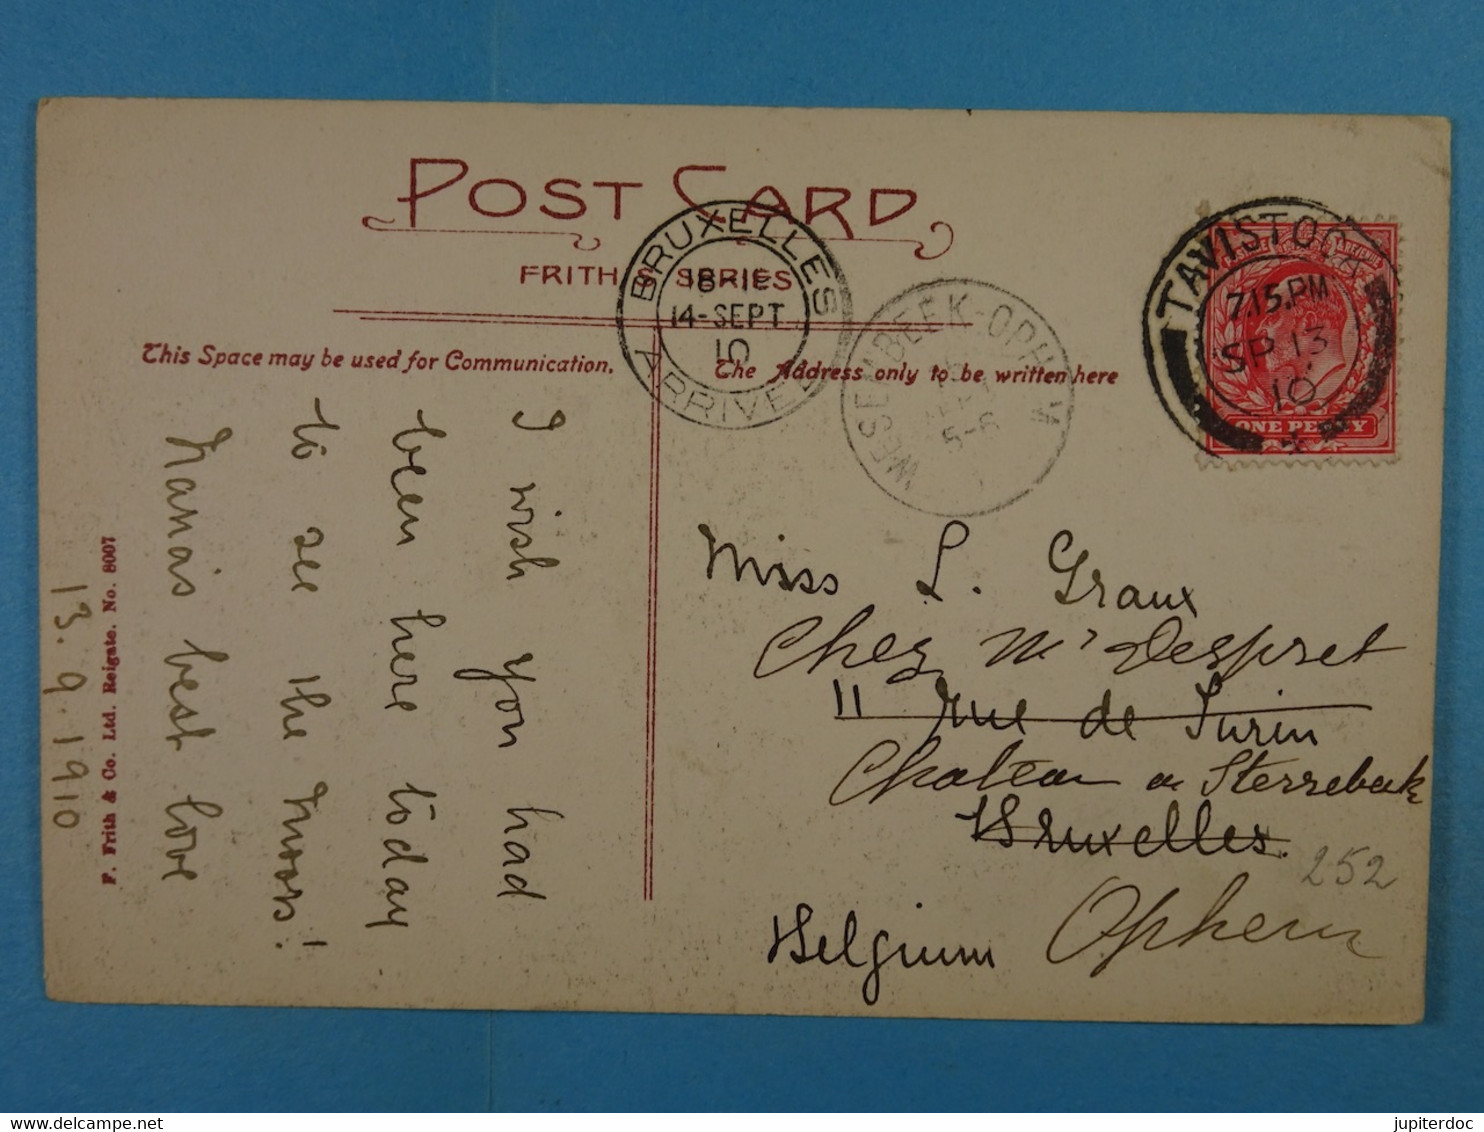 POST CARD
FRITH'S SERIES
This Space may be used for Communication.
The Address only to be written here
BRUXELLES
18-19
14-SEPT
10
ARRIVEE
WESEMBEEK-OPHEM
SEPT
5-6
TAVISTOCK
7.15.PM
SP 13
10
ONE PENNY
I wish you had
been here today
to see the Moors!
Mania's best love
13.9.1910
F. Frith & Co. Ltd. Reigate. No. 8007
Miss L. Graux
Chez Mr Despret
11 rue de Turin
Chateau de Sterrebeek
Bruxelles.
252
Belgium Ophem
jupiterdoc